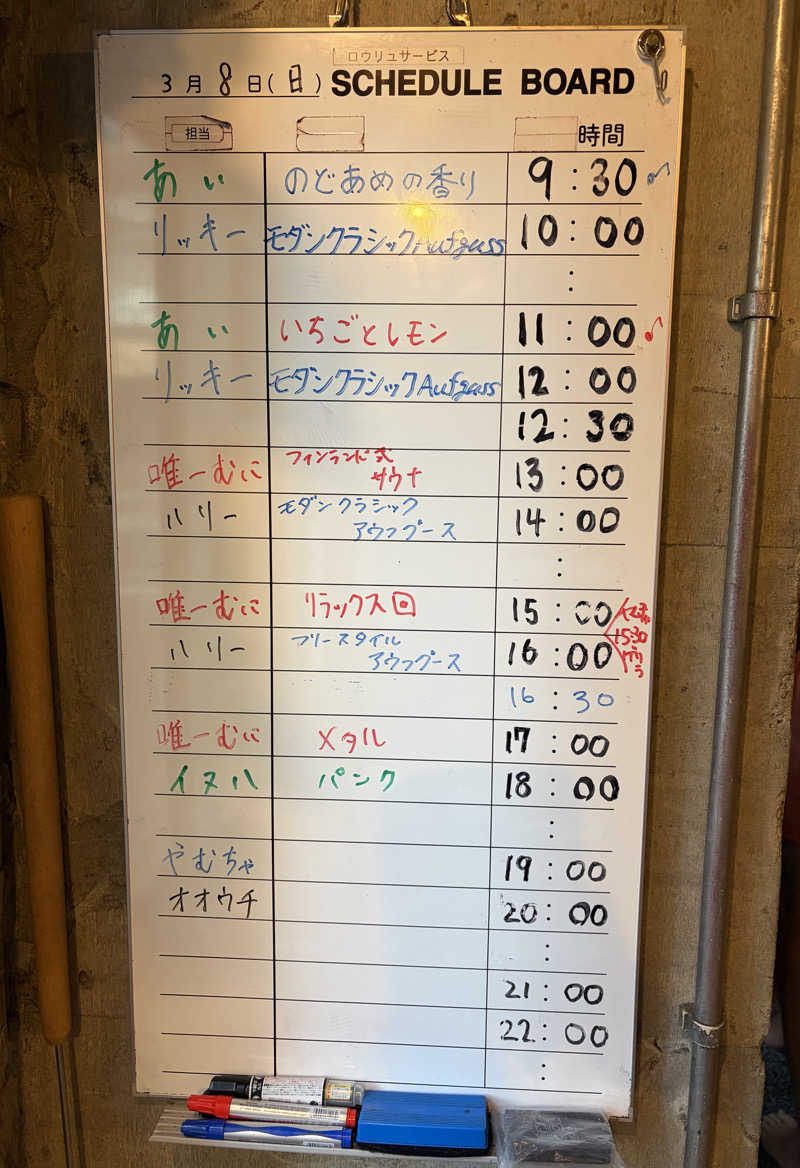 ロウリュサービス
3月8日(日) SCHEDULE BOARD
担当 時間
あい のどあめの香り 9:30♪
リッキー モダンクラシックAufguss 10:00
:
あい いちごとレモン 11:00♪
リッキー モダンクラシックAufguss 12:00
12:30
唯一むに フィンランド式サウナ 13:00
ハリー モダンクラシック
アウフグース 14:00
:
唯一むに リラックス回 15:00
15:30
ハリー フリースタイル
アウフグース 16:00
16:30
唯一むに メタル 17:00
イヌハ パンク 18:00
:
やむちゃ 19:00
オオウチ 20:00
:
21:00
22:00
: